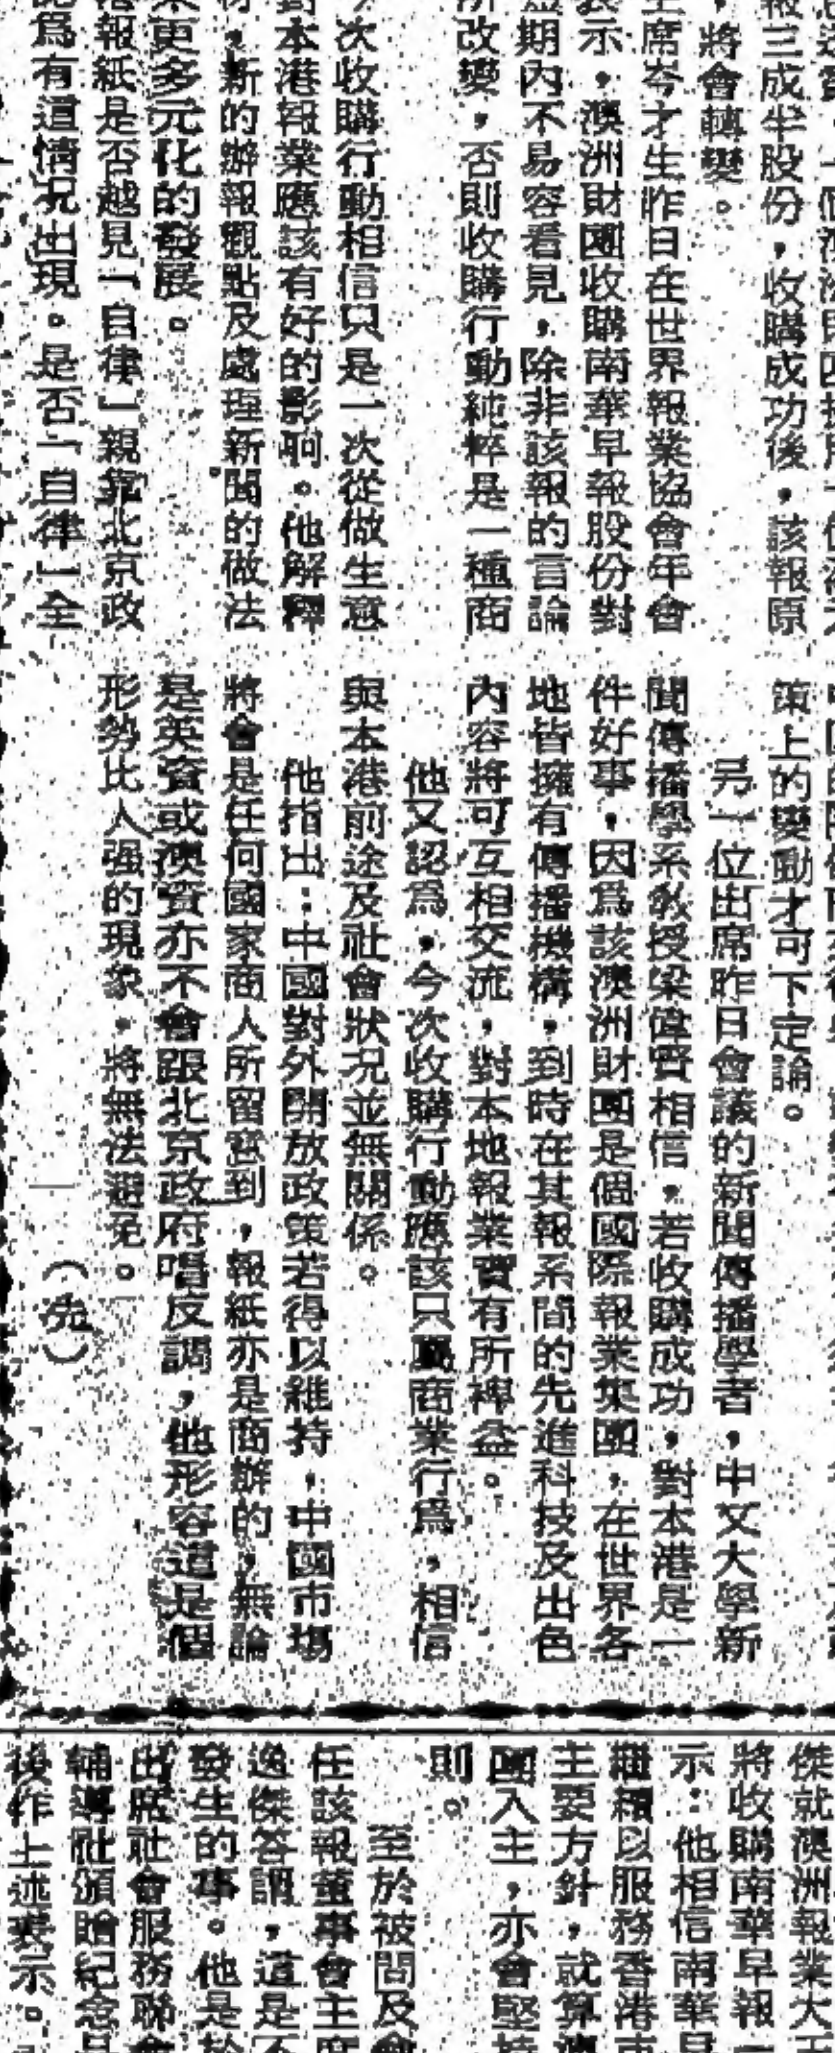 報三成半股份,收購成功後,該報原
,將會轉變。
主席岑才生昨日在世界報業協會年會
表示,澳洲財團收購南華早報股份對
期內不易容看見,除非該報的言論
所改變,否則收購行動純粹是一種商
次收購行動相信只是一次從做生意
對本港報業應該有好的影响。他解釋
,新的辦報觀點及處理新聞的做法
來更多元化的發展。
港報紙是否越見「自律」親靠北京政
認為有這情况出現。是否「自律」全
策上的變動才可下定論。
另一位出席昨日會議的新聞傳播學者,中文大學新
聞傳播學系教授梁偉賢相信,若收購成功,對本港是一
件好事,因為該澳洲財團是個國際報業集團,在世界各
地皆擁有傳播機構,到時在其報系間的先進科技及出色
內容將可互相交流,對本地報業實有所裨益。
他又認為,今次收購行動應該只屬商業行為,相信
與本港前途及社會狀况並無關係。
他指出:中國對外開放政策若得以維持,中國市場
將會是任何國家商人所留意到,報紙亦是商辦的,無論
是英資或澳資亦不會跟北京政府唱反調,他形容這是個
形勢比人强的現象,將無法避免。
(先)
傑就澳洲報業大王
將收購南華早報一
示:他相信南華早
繼續以服務香港市
主要方針,就算澳
團入主,亦會堅持
則。
至於被問及會
任該報董事會主席
逸傑答謂,這是不
發生的事。他是於
出席社會服務聯會
輔導社頒贈紀念品
後作上述表示。